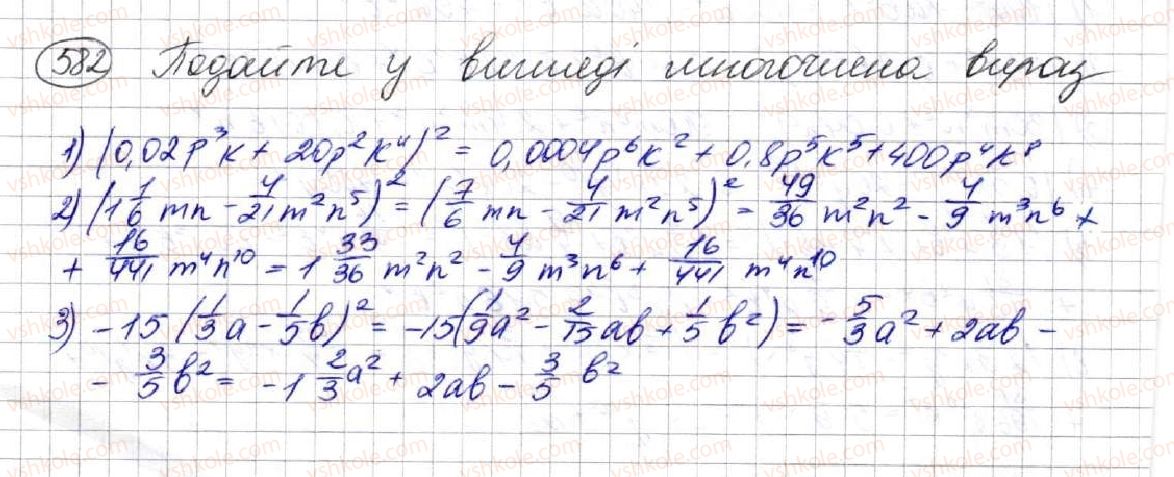 582 Подайте у вигляді многочлена вираз
1) (0,02p³k + 20p²k⁴)² = 0,0004p⁶k² + 0,8p⁵k⁵ + 400p⁴k⁸
2) (1 1/6 mn - 4/21 m²n⁵)² = (7/6 mn - 4/21 m²n⁵)² = 49/36 m²n² - 4/9 m³n⁶ +
+ 16/441 m⁴n¹⁰ = 1 33/36 m²n² - 4/9 m³n⁶ + 16/441 m⁴n¹⁰
3) -15 (1/3 a - 1/5 b)² = -15(1/9 a² - 2/15 ab + 1/5 b²) = -5/3 a² + 2ab -
- 3/5 b² = -1 2/3 a² + 2ab - 3/5 b²